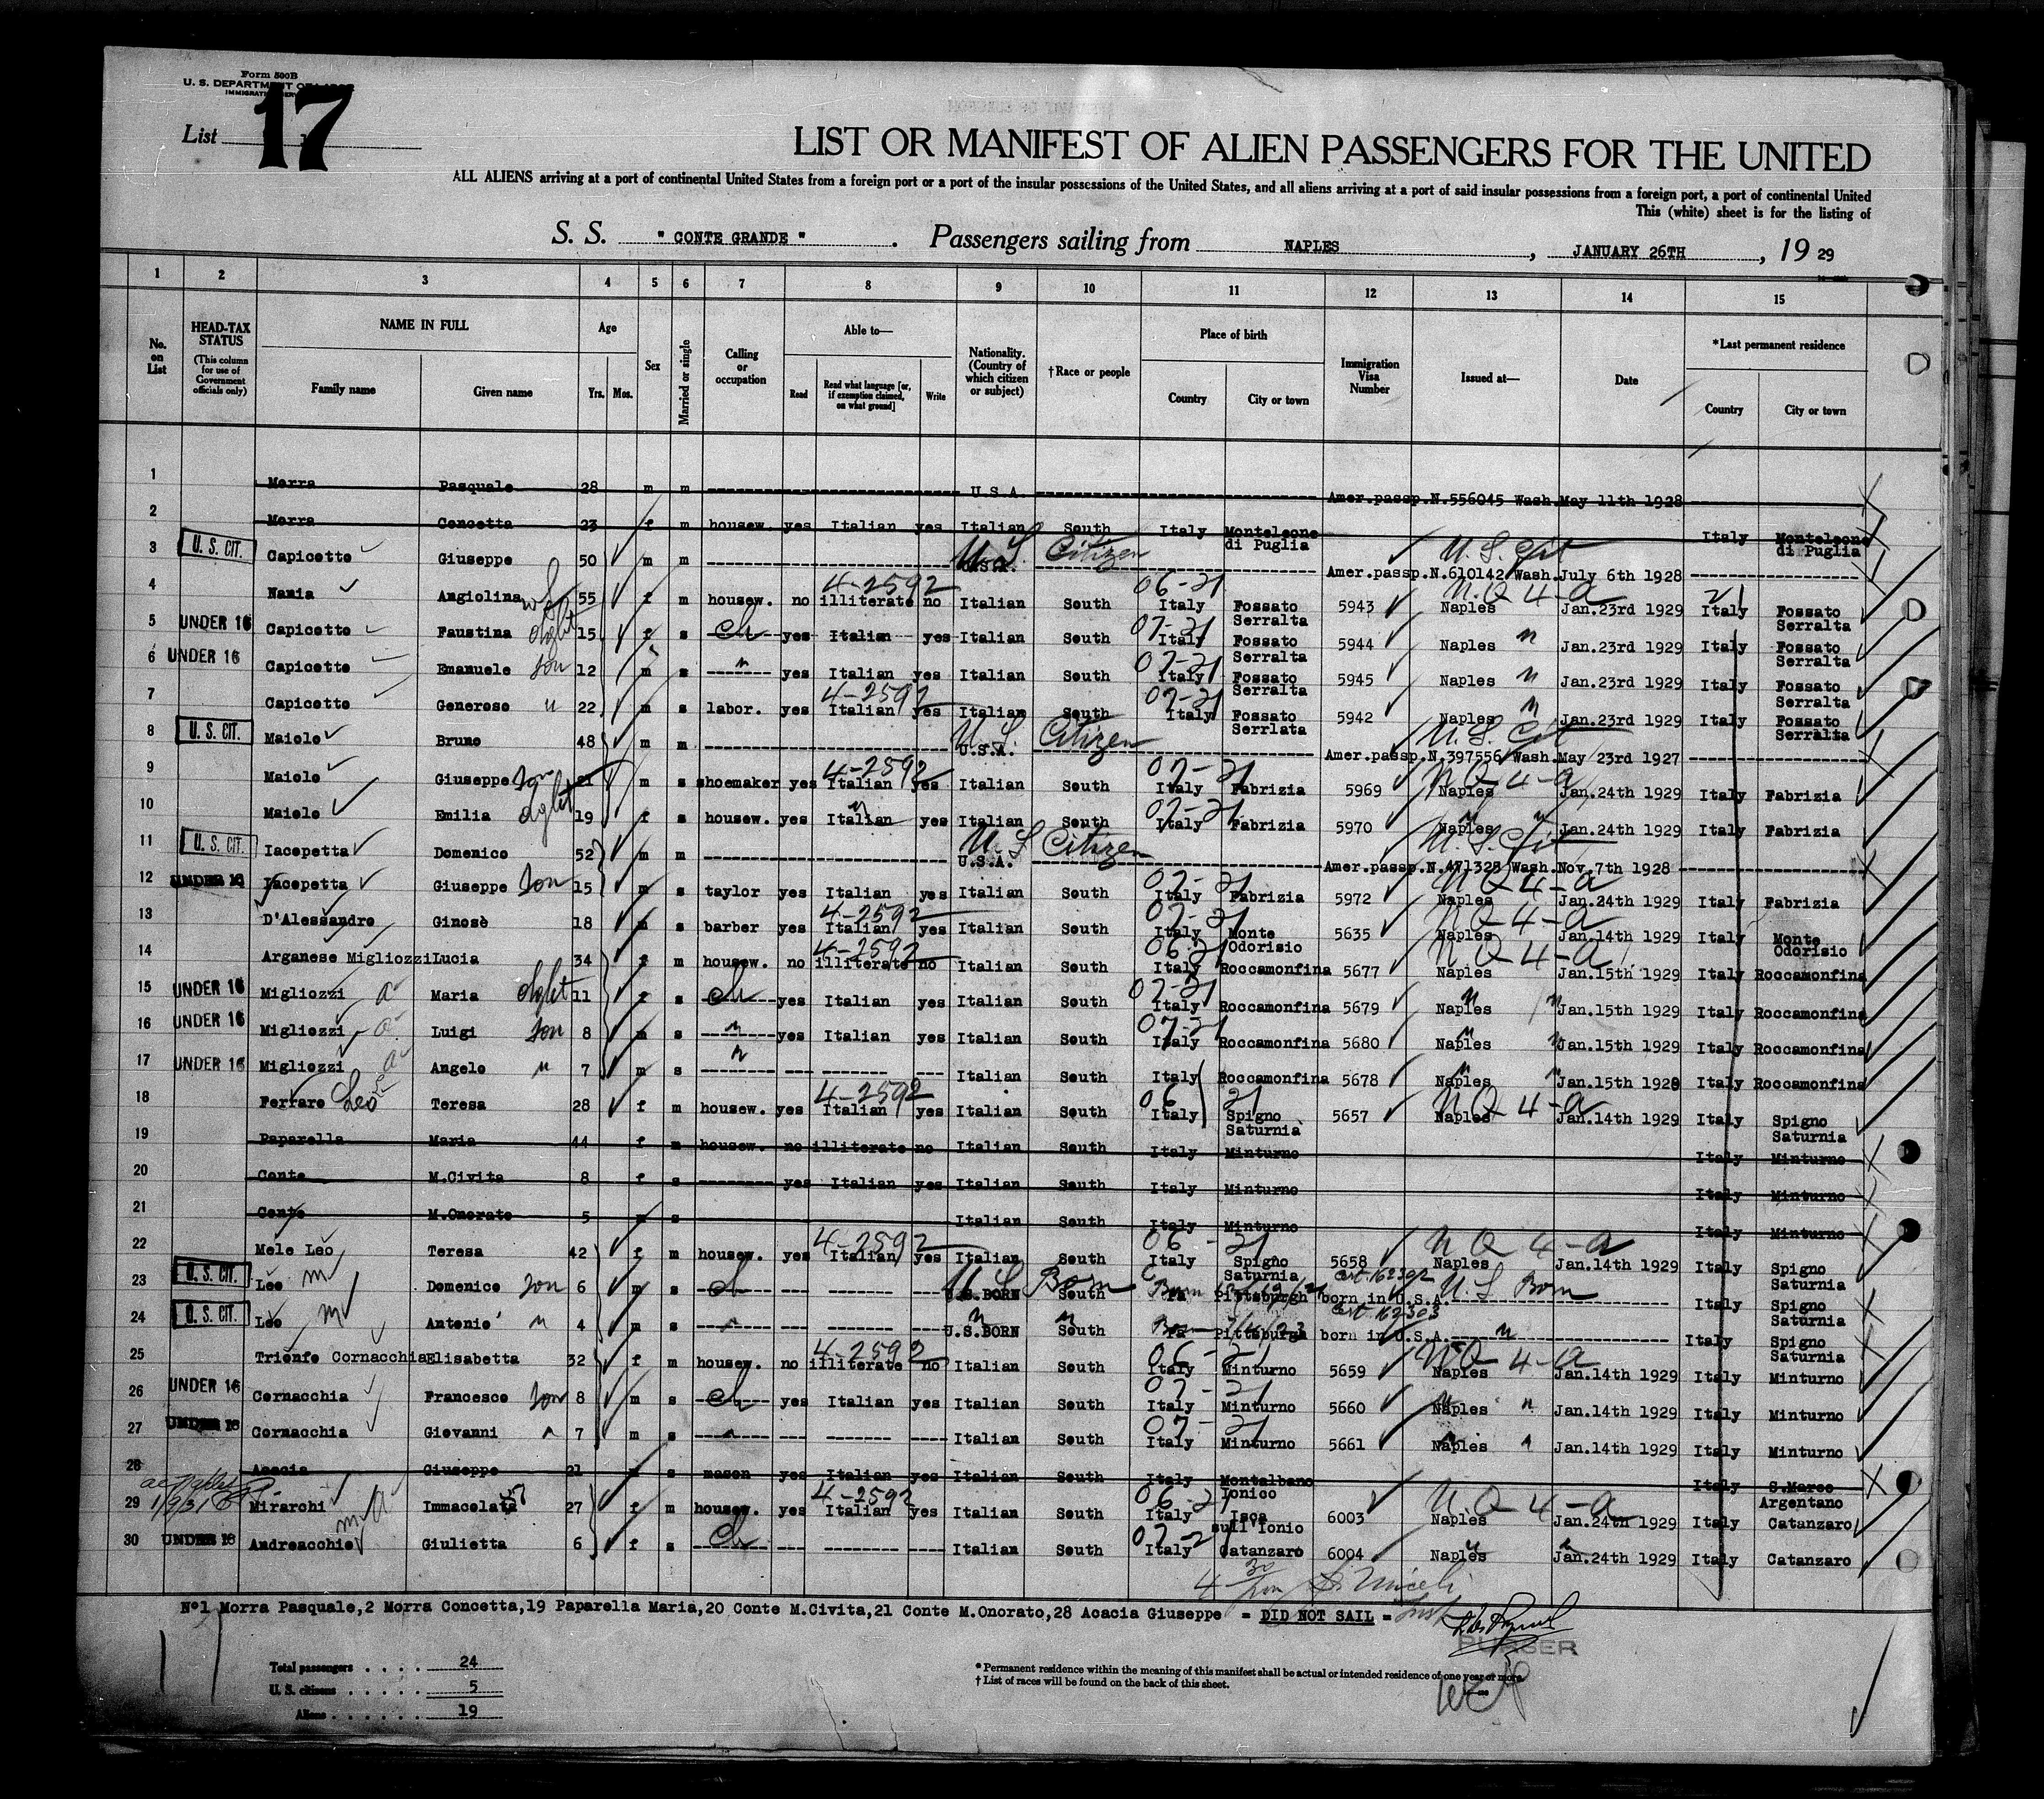 Form 500B
U. S. DEPARTMENT OF LABOR
List 17
LIST OR MANIFEST OF ALIEN PASSENGERS FOR THE UNITED
ALL ALIENS arriving at a port of continental United States from a foreign port or a port of the insular possessions of the United States, and all aliens arriving at a port of said insular possessions from a foreign port, a port of continental United
This (white) sheet is for the listing of
S. S. " CONTE GRANDE " . Passengers sailing from NAPLES , JANUARY 26TH , 19 29
1 2 3 4 5 6 7 8 9 10 11 12 13 14 15
No. on List
HEAD-TAX STATUS (This column for use of Government officials only)
NAME IN FULL Family name Given name
Age Yrs. Mos.
Sex
Married or single
Calling or occupation
Able to— Read Read what language [or, if exemption claimed, on what ground] Write
Nationality. (Country of which citizen or subject)
†Race or people
Place of birth Country City or town
Immigration Visa Number
Issued at—
Date
*Last permanent residence Country City or town
1 Morra Pasquale 28 m m U.S.A. Amer.passp.N.556045 Wash.May 11th 1928
2 Morra Concetta 23 f m housew. yes Italian yes Italian South Italy Monteleone di Puglia Italy Monteleone di Puglia
3 U. S. CIT. Capicotto Giuseppe 50 m m U.S.A. U S Citizen Amer.passp.N.610142 Wash.July 6th 1928 U. S. Cit
4 Nania Angiolina wf 55 f m housew. no illiterate no 4-2592 Italian South Italy 06-21 Fossato Serralta 5943 Naples N.Q 4-a Jan.23rd 1929 Italy Fossato Serralta
5 UNDER 16 Capicotto Faustina dght 15 f s ch yes Italian yes Italian South Italy 07-21 Fossato Serralta 5944 Naples " Jan.23rd 1929 Italy Fossato Serralta
6 UNDER 16 Capicotto Emanuele son 12 m s " yes Italian yes Italian South Italy 07-21 Fossato Serralta 5945 Naples " Jan.23rd 1929 Italy Fossato Serralta
7 Capicotto Generoso " 22 m s labor. yes Italian yes 4-2592 Italian South Italy 07-21 Fossato Serrlata 5942 Naples " Jan.23rd 1929 Italy Fossato Serralta
8 U. S. CIT. Maiolo Bruno 48 m m U.S.A. U S Citizen Amer.passp.N.397556 Wash.May 23rd 1927 U. S. Cit
9 Maiolo Giuseppe son 21 m s shoemaker yes Italian yes 4-2592 Italian South Italy 07-21 Fabrizia 5969 Naples N Q 4-a Jan.24th 1929 Italy Fabrizia
10 Maiolo Emilia dght 19 f s housew. yes Italian yes " Italian South Italy 07-21 Fabrizia 5970 Naples " Jan.24th 1929 Italy Fabrizia
11 U. S. CIT. Iacopetta Domenico 52 m m U.S.A. U S Citizen Amer.passp.N.471325 Wash.Nov.7th 1928 U. S. Cit
12 UNDER 16 Iacopetta Giuseppe son 15 m s taylor yes Italian yes Italian South Italy 07-21 Fabrizia 5972 Naples N Q 4-a Jan.24th 1929 Italy Fabrizia
13 D'Alessandro Ginosè 18 m s barber yes Italian yes 4-2592 Italian South Italy 07-21 Monte Odorisio 5635 Naples N Q 4-a Jan.14th 1929 Italy Monte Odorisio
14 Arganese Migliozzi Lucia 34 f m housew. no illiterate no 4-2592 Italian South Italy 06-21 Roccamonfina 5677 Naples N Q 4-a Jan.15th 1929 Italy Roccamonfina
15 UNDER 16 Migliozzi a Maria dght 11 f s ch yes Italian yes Italian South Italy 07-21 Roccamonfina 5679 Naples " Jan.15th 1929 Italy Roccamonfina
16 UNDER 16 Migliozzi a Luigi son 8 m s " yes Italian yes Italian South Italy 07-21 Roccamonfina 5680 Naples " Jan.15th 1929 Italy Roccamonfina
17 UNDER 16 Migliozzi a Angelo " 7 m s " Italian South Italy Roccamonfina 5678 Naples " Jan.15th 1929 Italy Roccamonfina
18 Ferraro Leo Teresa 28 f m housew. yes Italian yes 4-2592 Italian South Italy 06 21 Spigno Saturnia 5657 Naples N Q 4-a Jan.14th 1929 Italy Spigno Saturnia
19 Paparella Maria 44 f m housew. no illiterate no Italian South Italy Minturno Italy Minturno
20 Conte M.Civita 8 f s yes Italian yes Italian South Italy Minturno Italy Minturno
21 Conte M.Onorato 5 m s Italian South Italy Minturno Italy Minturno
22 Mele Leo Teresa 42 f m housew. yes Italian yes 4-2592 Italian South Italy 06-21 Spigno Saturnia 5658 Naples N Q 4-a Jan.14th 1929 Italy Spigno Saturnia
23 U. S. CIT. Leo m Domenico son 6 m s ch U.S.BORN U S Born South Pittsburgh born in U.S.A. U S Born Italy Spigno Saturnia
24 U. S. CIT. Leo m Antonio " 4 m s " U.S.BORN " South " Pittsburgh born in U.S.A. Cert 162303 " Italy Spigno Saturnia
25 Trionfo Cornacchia Elisabetta 32 f m housew. no illiterate no 4-2592 Italian South Italy 06-21 Minturno 5659 Naples N Q 4-a Jan.14th 1929 Italy Minturno
26 UNDER 16 Cornacchia Francesco son 8 m s ch yes Italian yes Italian South Italy 07-21 Minturno 5660 Naples " Jan.14th 1929 Italy Minturno
27 UNDER 16 Cornacchia Giovanni " 7 m s " Italian South Italy 07-21 Minturno 5661 Naples " Jan.14th 1929 Italy Minturno
28 Acacia Giuseppe 21 m s mason yes Italian yes Italian South Italy Montalbano Ionico Italy S.Marco Argentano
29 Mirarchi Immacolata 27 f m housew. yes Italian yes 4-2592 Italian South Italy 06-21 Isca sull'Ionio 6003 Naples N.Q 4-a Jan.24th 1929 Italy Catanzaro
30 UNDER 16 Andreacchio Giulietta 6 f s ch Italian South Italy 07-21 Catanzaro 6004 Naples " Jan.24th 1929 Italy Catanzaro
N°1 Morra Pasquale,2 Morra Concetta,19 Paparella Maria,20 Conte M.Civita,21 Conte M.Onorato,28 Acacia Giuseppe = DID NOT SAIL =
PURSER
Total passengers . . . . 24
U. S. citizens . . . . . 5
Aliens . . . . . . 19
* Permanent residence within the meaning of this manifest shall be actual or intended residence of one year or more.
† List of races will be found on the back of this sheet.